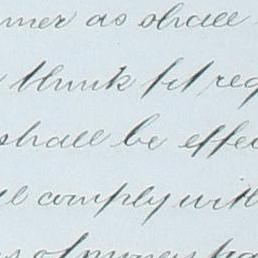 ner as shall
think fit req
shall be effec
l comply with
s of money pa